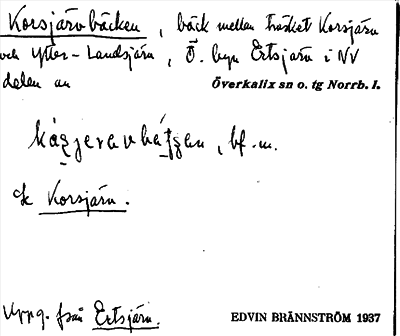 Korsjärvbäcken, bäck mellan träsket Korsjärv
och Ytter-Landsjärv, Ö. byn Ertsjärv i NV
delen av Överkalix sn o. tg Norrb. l.
bf. m.
jfr Korsjärv.
Uppg. från Ertsjärv. EDVIN BRÄNNSTRÖM 1937